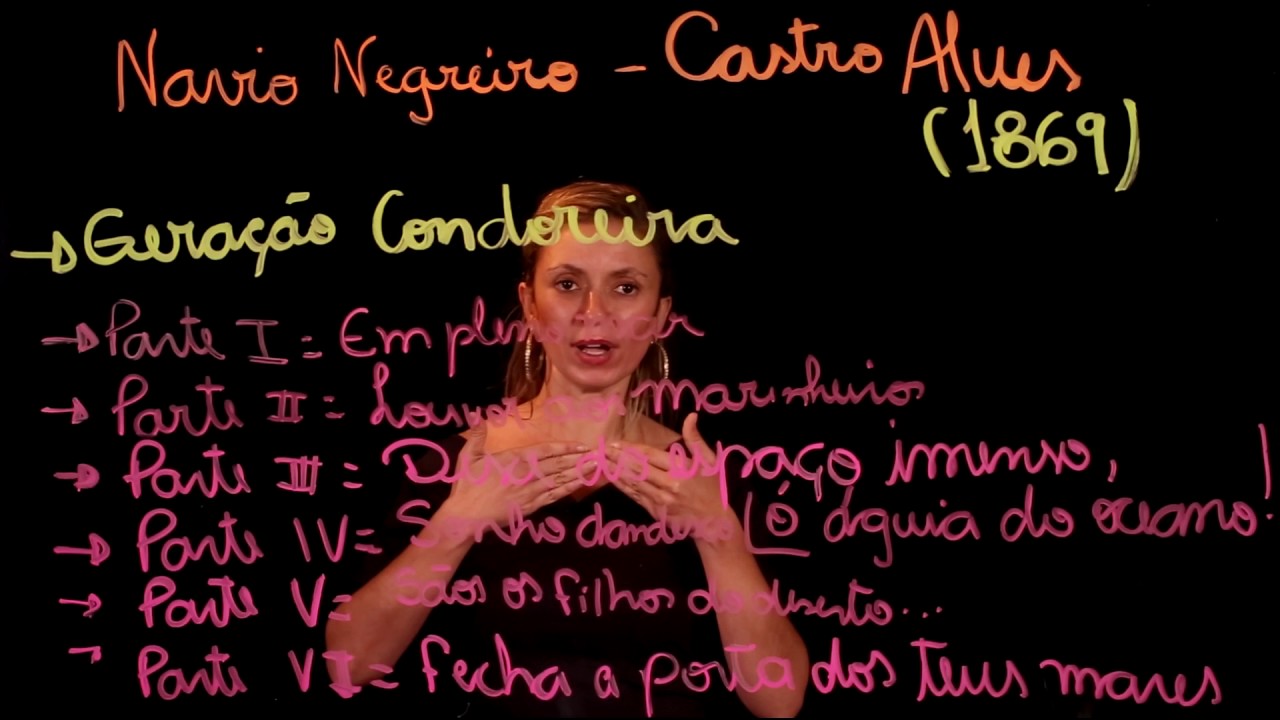 Navio Negreiro - Castro Alves
(1869)
→ Geração Condoreira
→ Parte I = Em pleno mar
→ Parte II = Louvor aos marinheiros
→ Parte III = Desce do espaço imenso,
ó águia do oceano!
→ Parte IV = Sonho dantesco
→ Parte V = São os filhos do deserto...
→ Parte VI = Fecha a porta dos teus mares